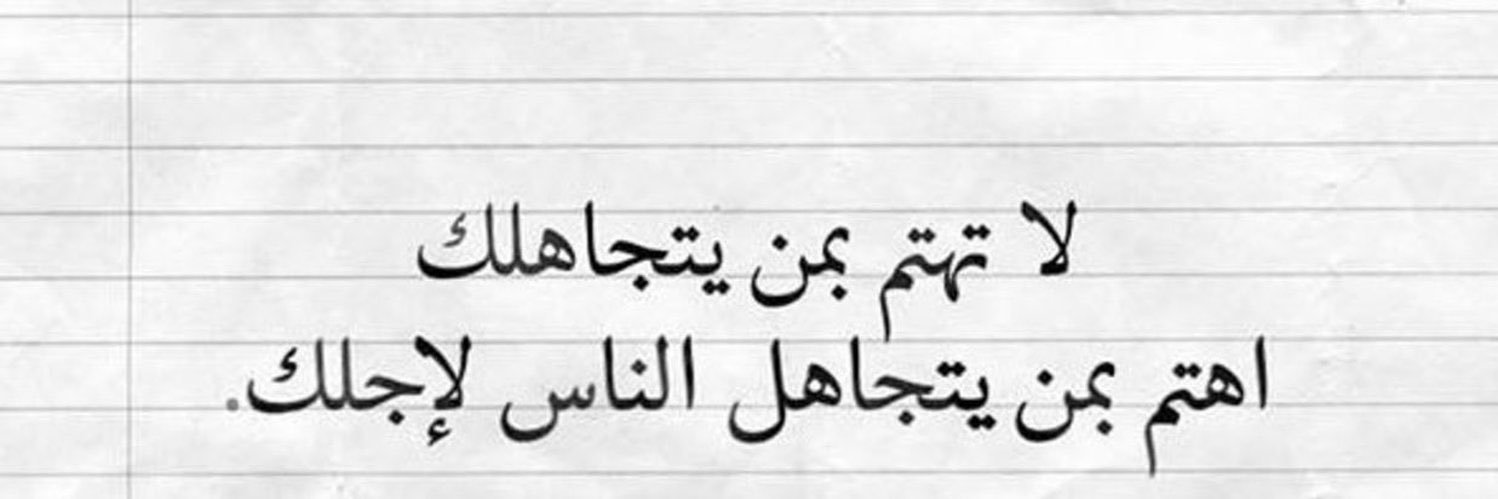 لا تهتم بمن يتجاهلك
اهتم بمن يتجاهل الناس لإجلك.